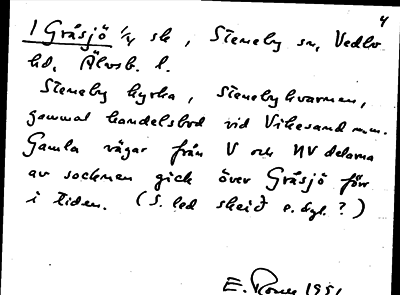 4
1 Gräsjö 1/4 sk, Steneby sn, Vedbo
hd. Älvsb. l.
Steneby kyrka, Stenebykvarnen,
gammal handelsbod vid Vikesand m.m.
Gamla vägar från V och NV delarna
av socknen gick över Gräsjö förr
i tiden. (S. led skeið e. dyl. ?)
E. 1951